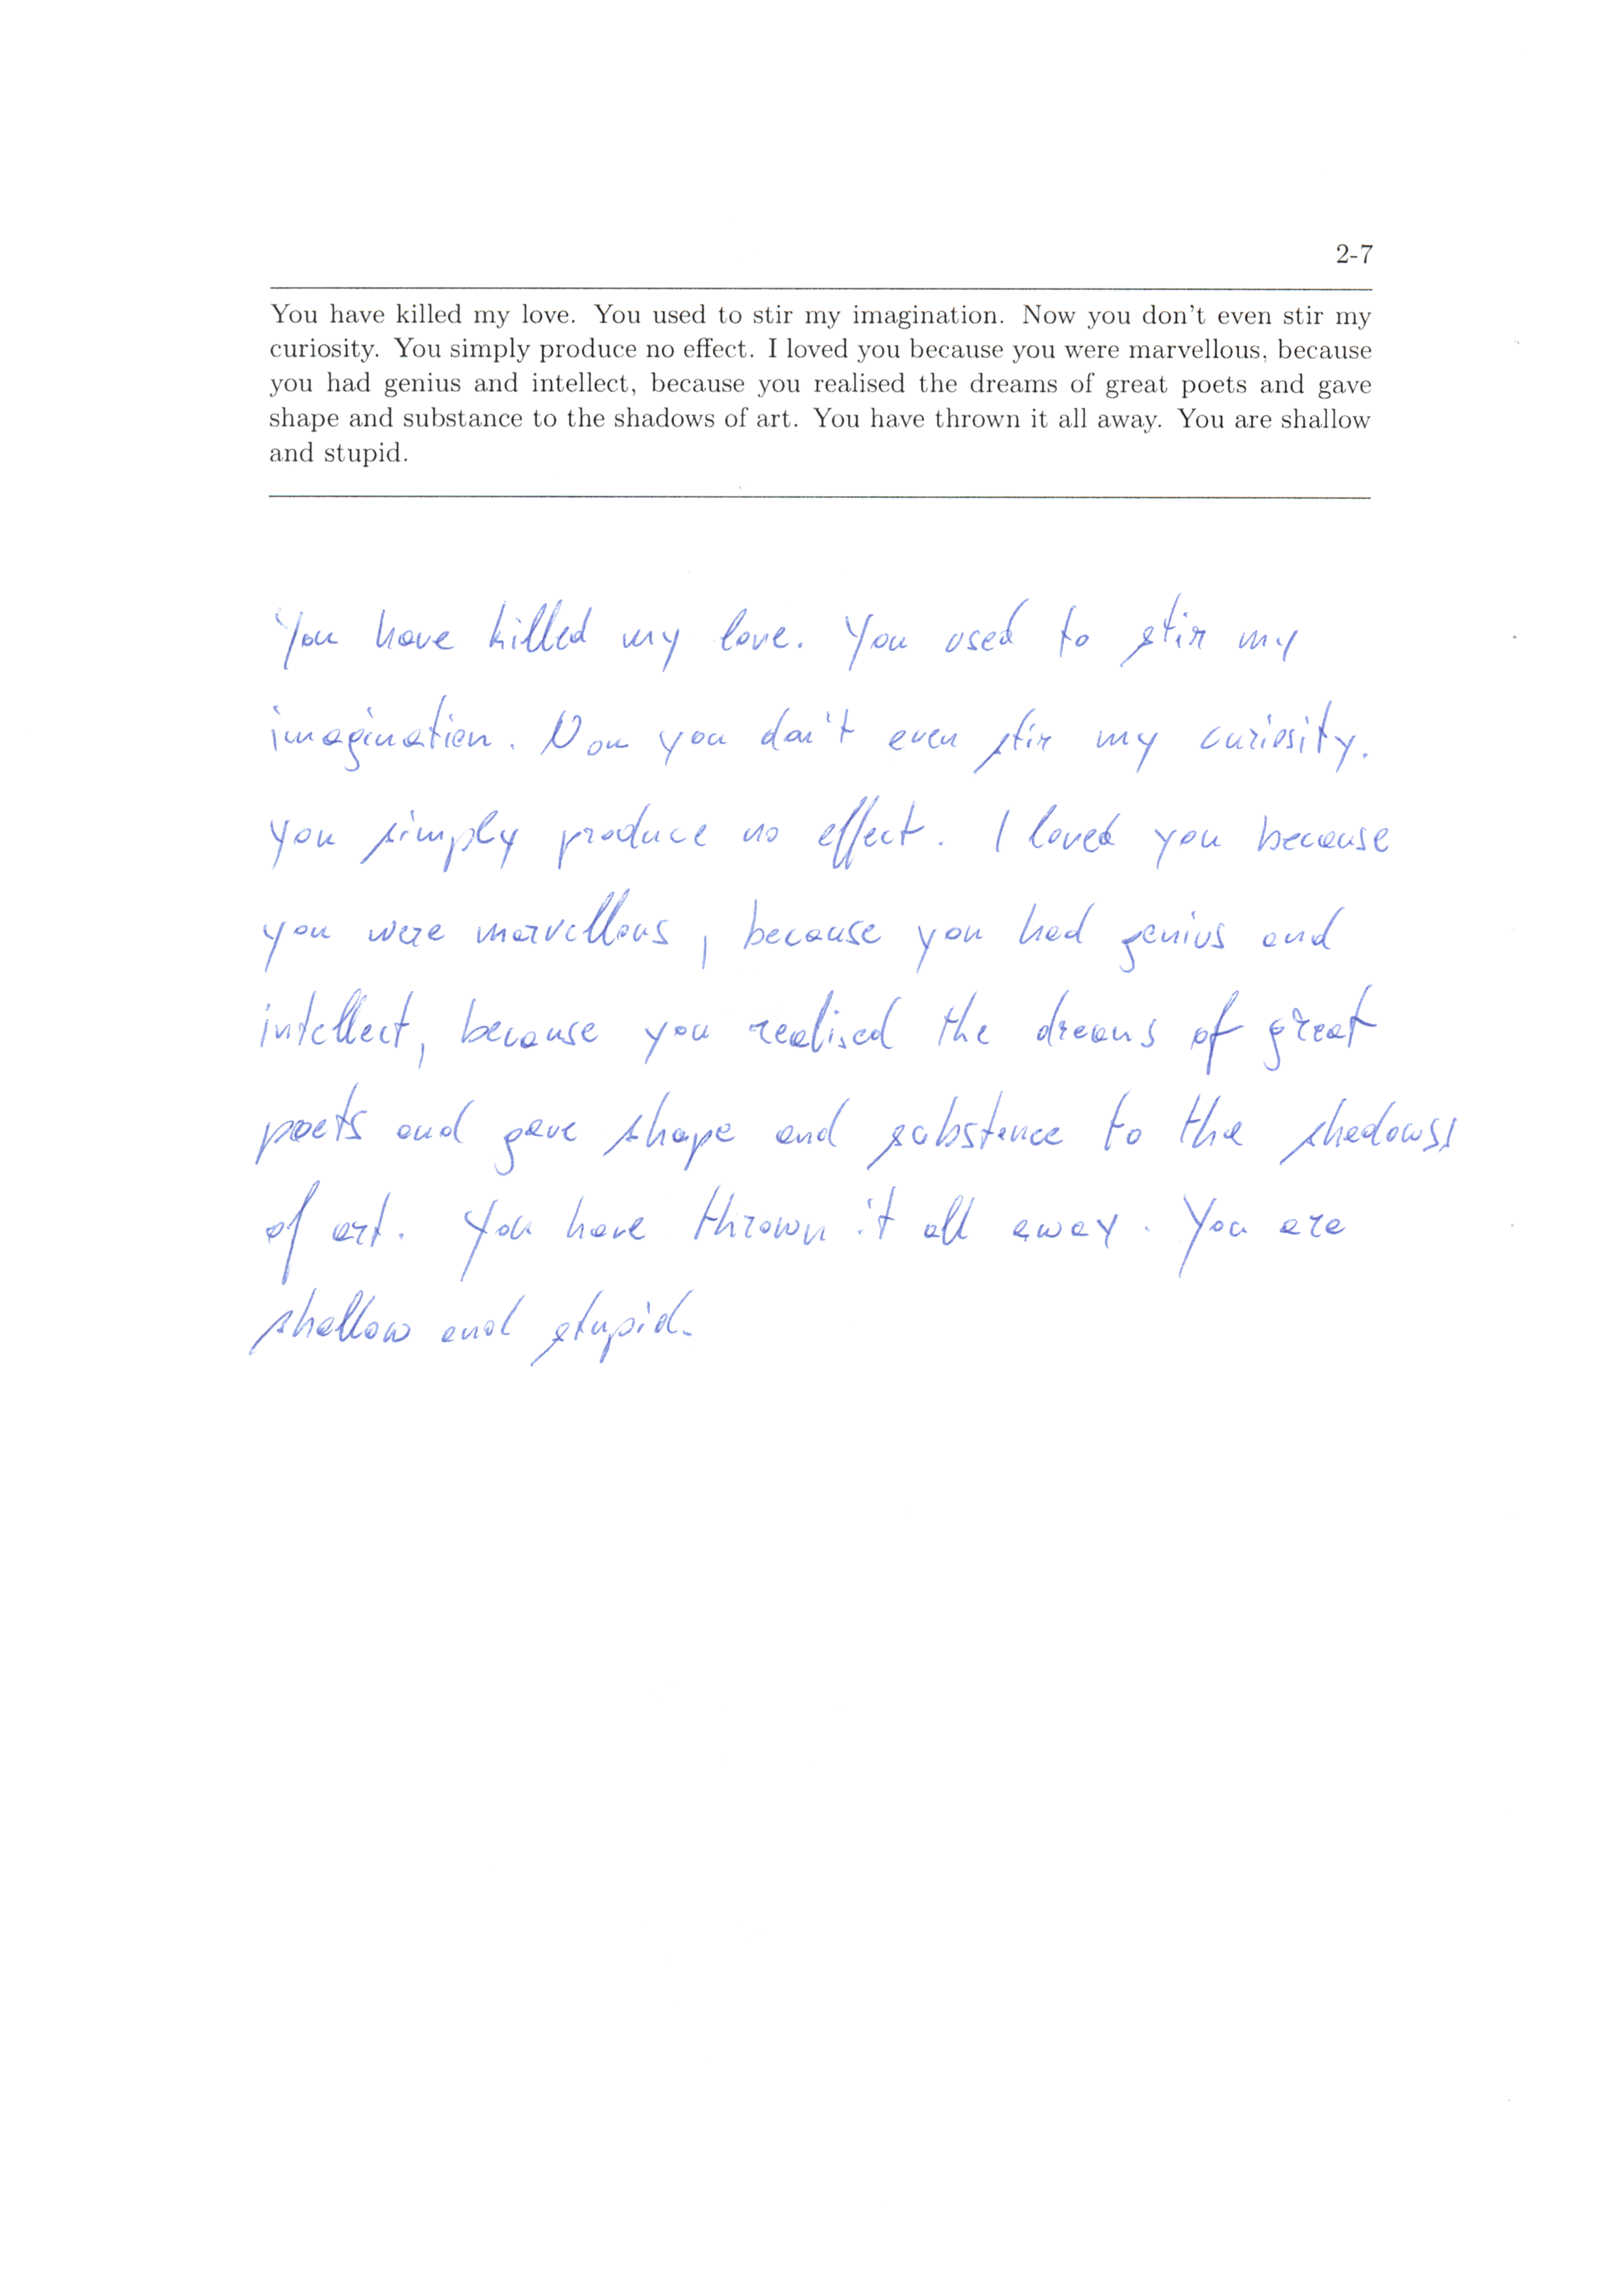 2-7
You have killed my love. You used to stir my imagination. Now you don't even stir my
curiosity. You simply produce no effect. I loved you because you were marvellous, because
you had genius and intellect, because you realised the dreams of great poets and gave
shape and substance to the shadows of art. You have thrown it all away. You are shallow
and stupid.
You have killed my love. You used to stir my
imagination. Now you don't even stir my curiosity.
you simply produce no effect. I loved you because
you were marvellous, because you had genius and
intellect, because you realised the dreams of great
poets and gave shape and substance to the shadowss
of art. You have thrown it all away. You are
shallow and stupid.